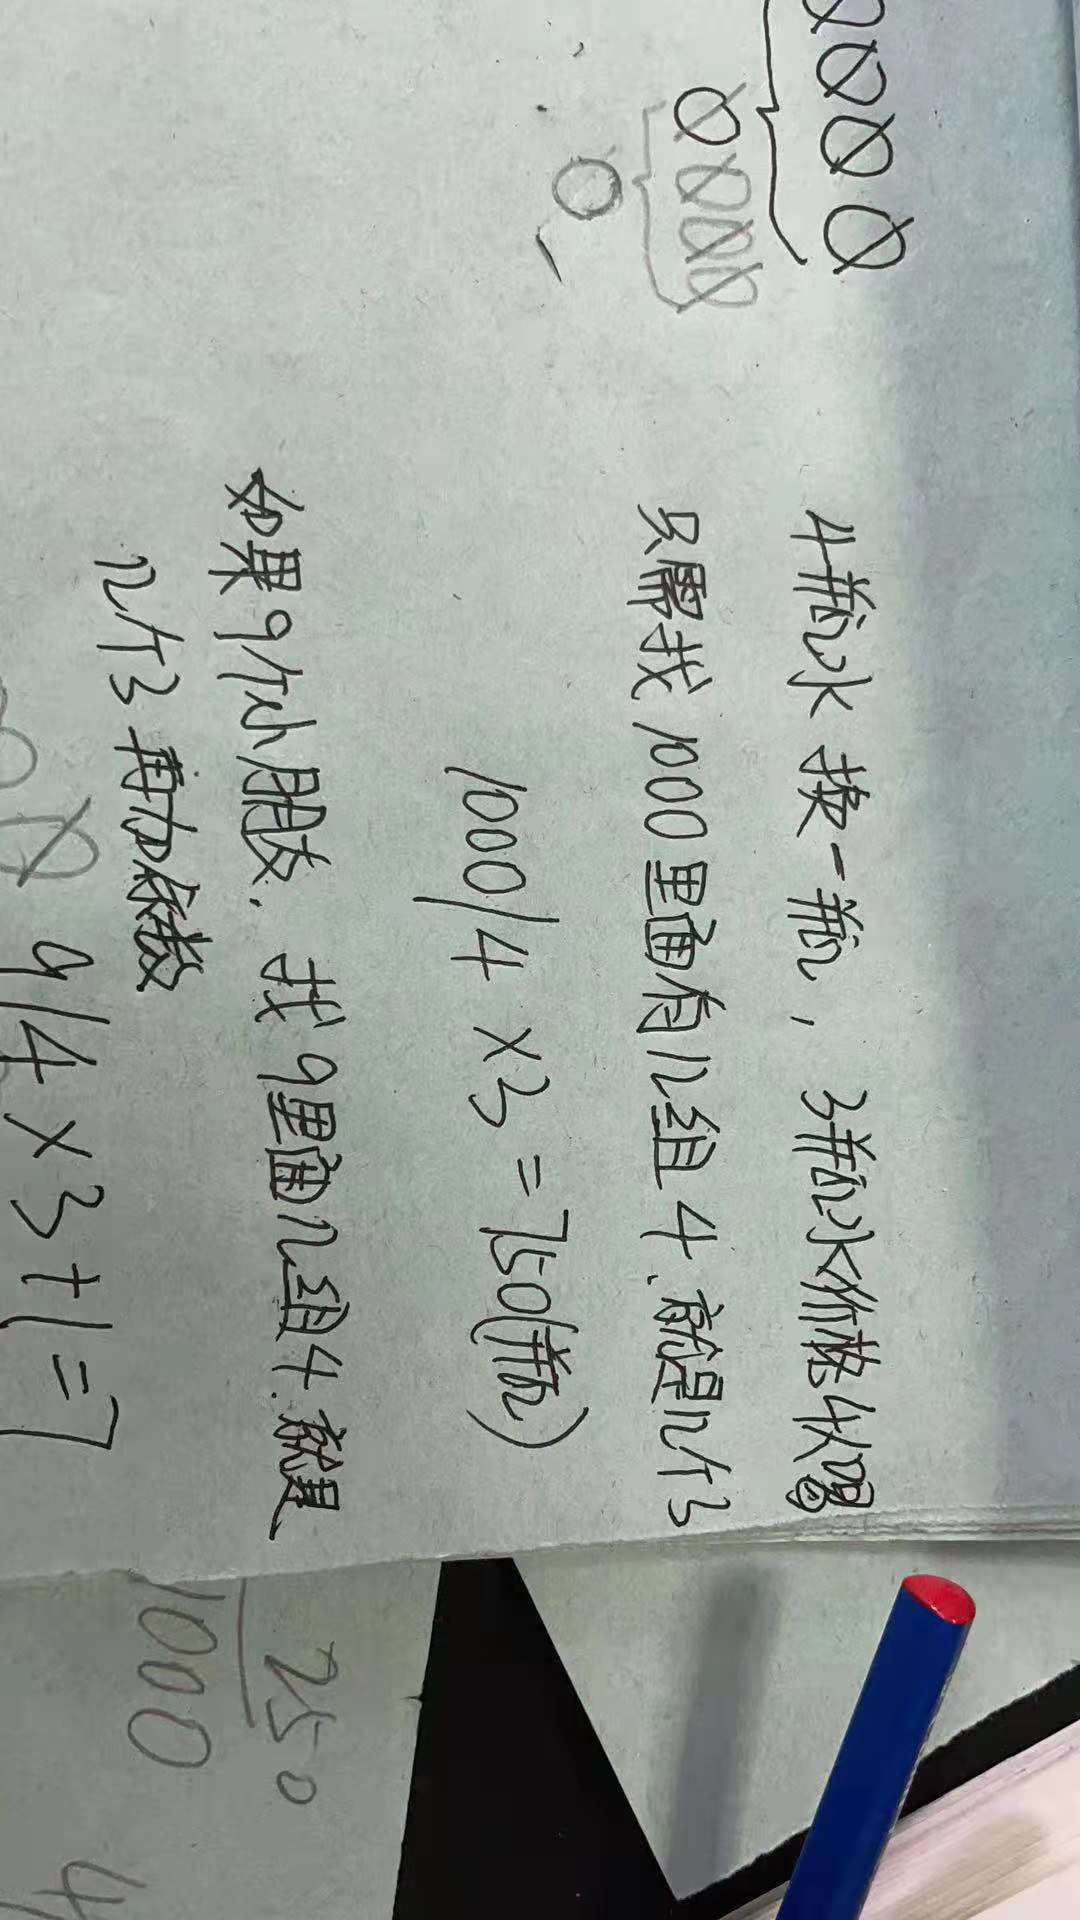 4瓶水换一瓶，3瓶水价格4人喝
只需找1000里面有几组4.就是几个3
1000/4 ×3=750(瓶)
如果9个小朋友.找9里面几组4.就是
几个3再加余数
9/4×3+1=7
250
1000
4